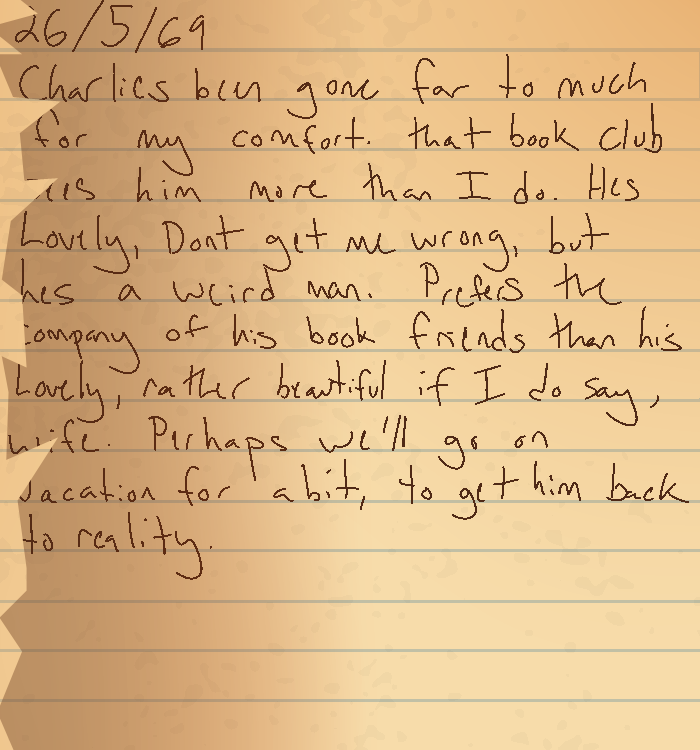 26/5/69
Charlies been gone far to much
for my comfort. that book club
sees him more than I do. Hes
Lovely, Dont get me wrong, but
hes a weird man. Prefers the
company of his book friends than his
Lovely, rather beautiful if I do say,
wife. Perhaps we'll go on
vacation for a bit, to get him back
to reality.